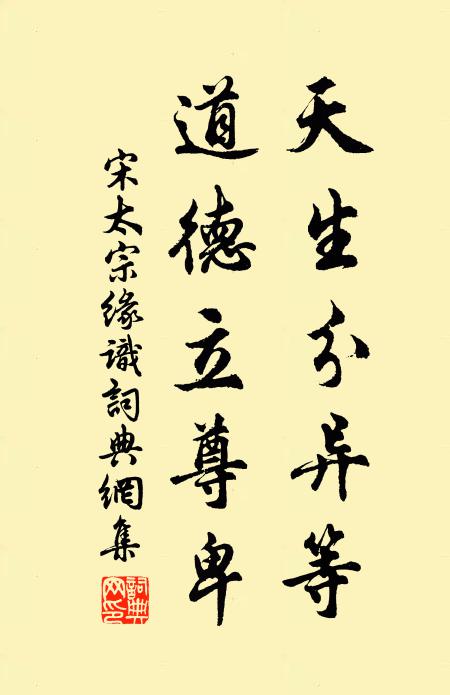 天生分异等
道德立尊卑
宋太宗緣識詞典網集
詞典网印